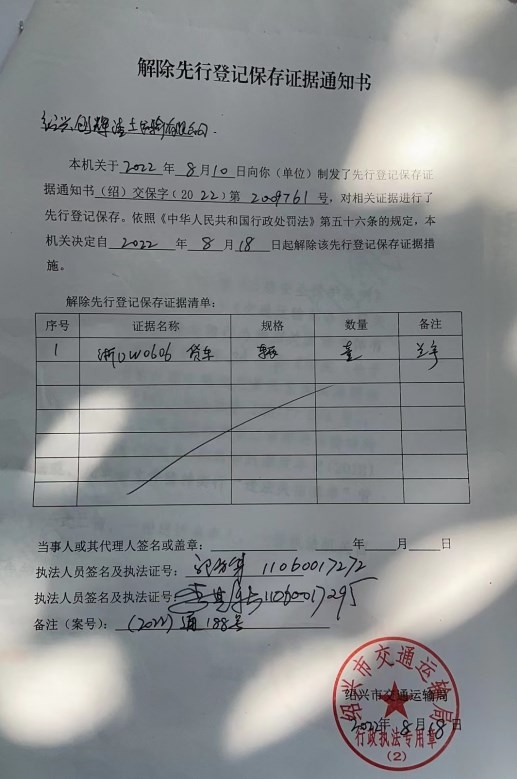 解除先行登记保存证据通知书
绍兴创辉渣土运输有限公司.
本机关于2022年8月10日向你(单位)制发了先行登记保存证
据通知书(绍)交保字(2022)第2009761号,对相关证据进行了
先行登记保存。依照《中华人民共和国行政处罚法》第五十六条的规定,本
机关决定自2022年8月18日起解除该先行登记保存证据措
施。
解除先行登记保存证据清单:
序号 证据名称 规格 数量 备注
1 浙DW0606 货车 辆 壹
当事人或其代理人签名或盖章: 年 月 日
执法人员签名及执法证号: 11060017272
执法人员签名及执法证号: 11060017295
备注(案号): (2022)通188号
绍兴市交通运输局
2022年8月18日
绍兴市交通运输局
行政执法专用章
(2)